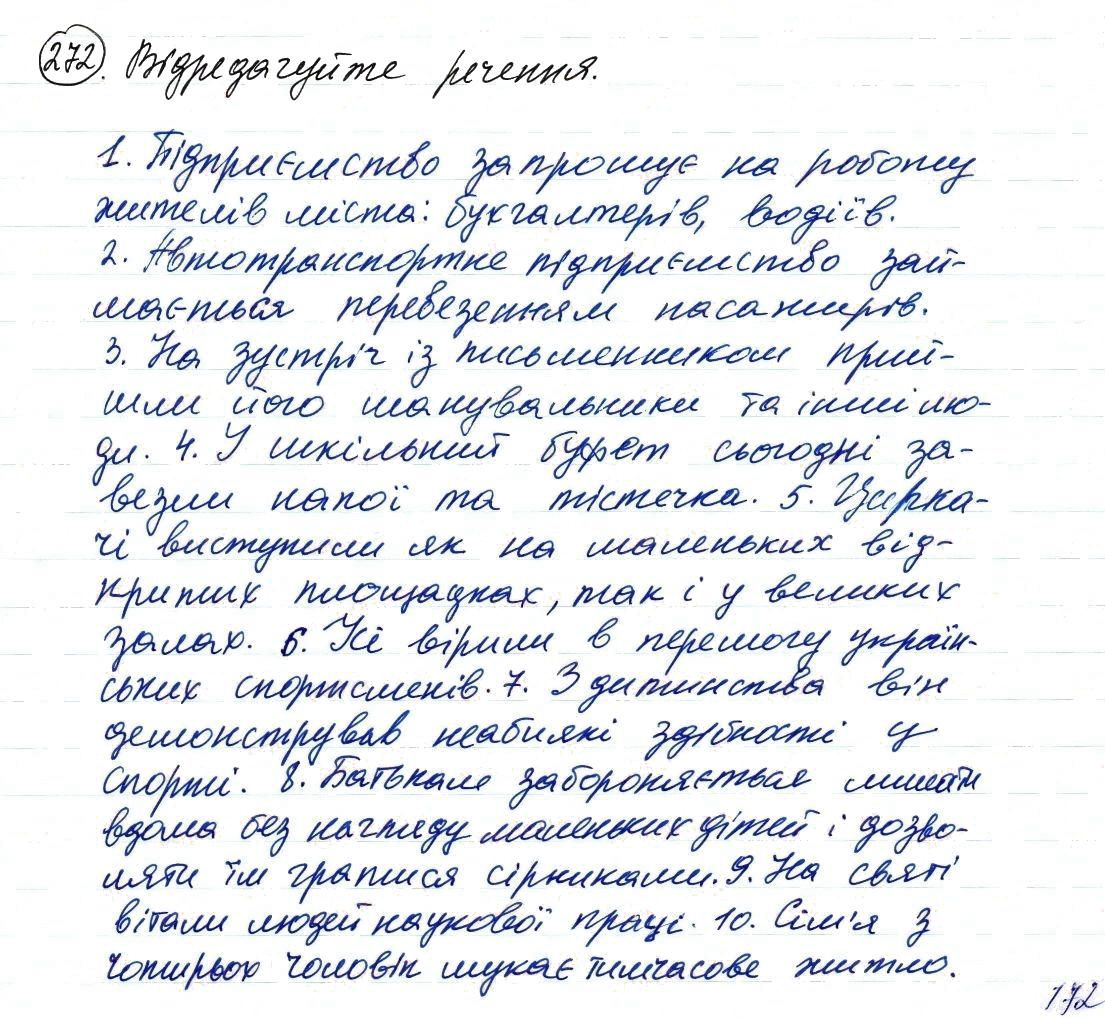 272. Відредагуйте речення.
1. Підприємство запрошує на роботу
жителів міста: бухгалтерів, водіїв.
2. Автотранспортне підприємство зай-
мається перевезенням пасажирів.
3. На зустріч із письменником прий-
шли його шанувальники та інші лю-
ди. 4. У шкільний буфет сьогодні за-
везли напої та тістечка. 5. Цирка-
чі виступили як на маленьких від-
критих площадках, так і у великих
залах. 6. Усі вірили в перемогу україн-
ських спортсменів. 7. З дитинства він
демонстрував неабиякі здібності у
спорті. 8. Батькам забороняється лишати
вдома без нагляду маленьких дітей і дозво-
ляти їм гратися сірниками. 9. На святі
вітали людей наукової праці. 10. Сім'я з
чотирьох чоловік шукає тимчасове житло.
172